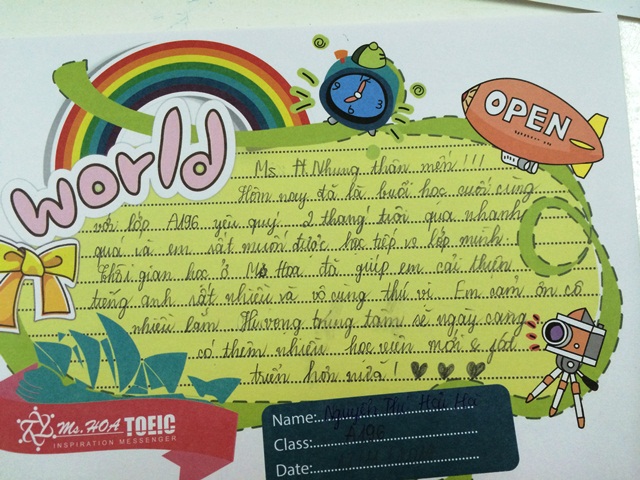 world
OPEN
Ms. H. Nhung thân mến!!!
Hôm nay đã là buổi học cuối cùng
với lớp A196 yêu quý. 2 tháng trôi qua nhanh
quá và em rất muốn được học tiếp vs lớp mình.
Thời gian học ở Ms Hoa đã giúp em cải thiện
tiếng anh rất nhiều và vô cùng thú vị. Em cảm ơn cô
nhiều lắm. Hi vọng trung tâm sẽ ngày càng
có thêm nhiều học viên mới & phát
triển hơn nữa!
Ms. HOA TOEIC
INSPIRATION MESSENGER
Name: Nguyễn Thị
Class: A196
Date: